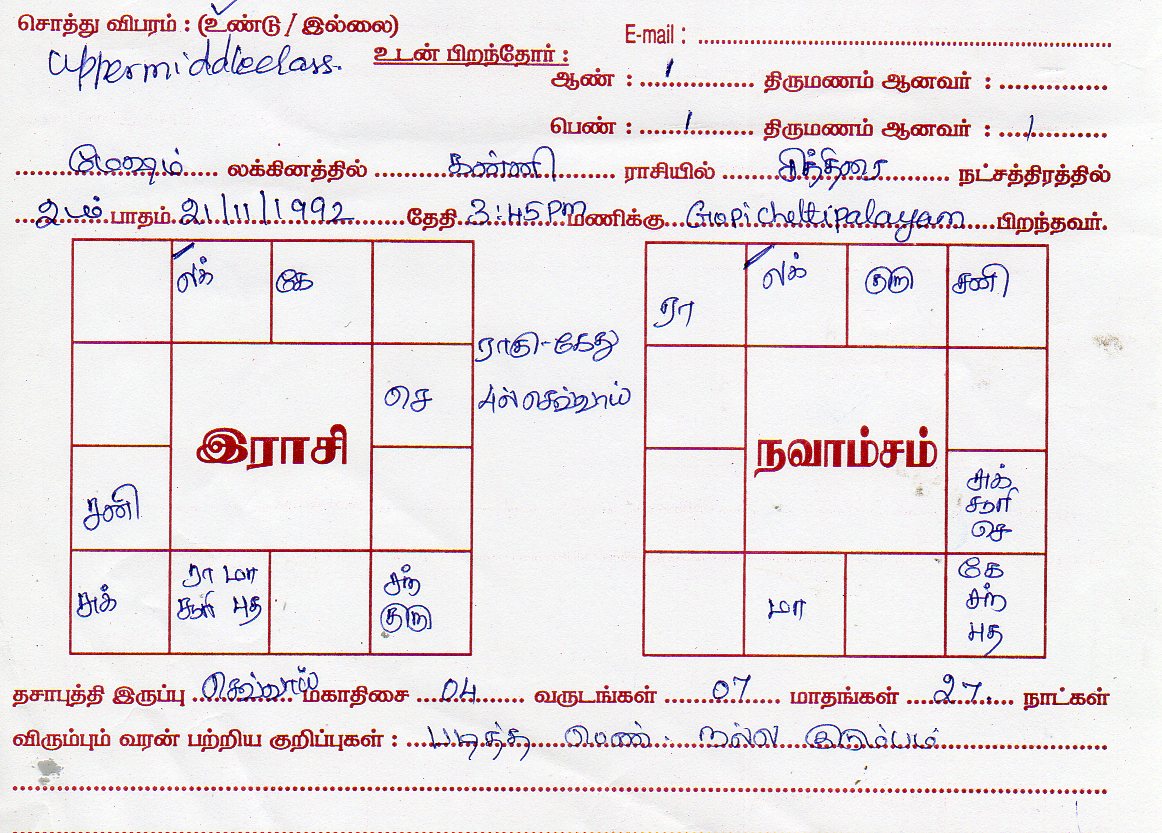 சொத்து விபரம் : (உண்டு / இல்லை)
E-mail :
uppermiddleclass.
உடன் பிறந்தோர் :
ஆண் : 1 திருமணம் ஆனவர் :
பெண் : 1 திருமணம் ஆனவர் : 1
மேஷம் லக்கினத்தில் கன்னி ராசியில் சித்திரை நட்சத்திரத்தில்
2ம் பாதம் 21/11/1992 தேதி 3:45PM மணிக்கு Gopichettipalayam பிறந்தவர்.
லக் கே
செ
ராகு-கேது
4ல் செவ்வாய்
இராசி
சனி
சுக் ரா மா சந்
சூரி புத குரு
லக் குரு சனி
ரா
நவாம்சம்
சுக்
சூரி
செ
மா கே
சந்
புத
தசாபுத்தி இருப்பு செவ்வாய் மகாதிசை 04 வருடங்கள் 07 மாதங்கள் 27 நாட்கள்
விரும்பும் வரன் பற்றிய குறிப்புகள் : படித்த பெண். நல்ல குடும்பம்